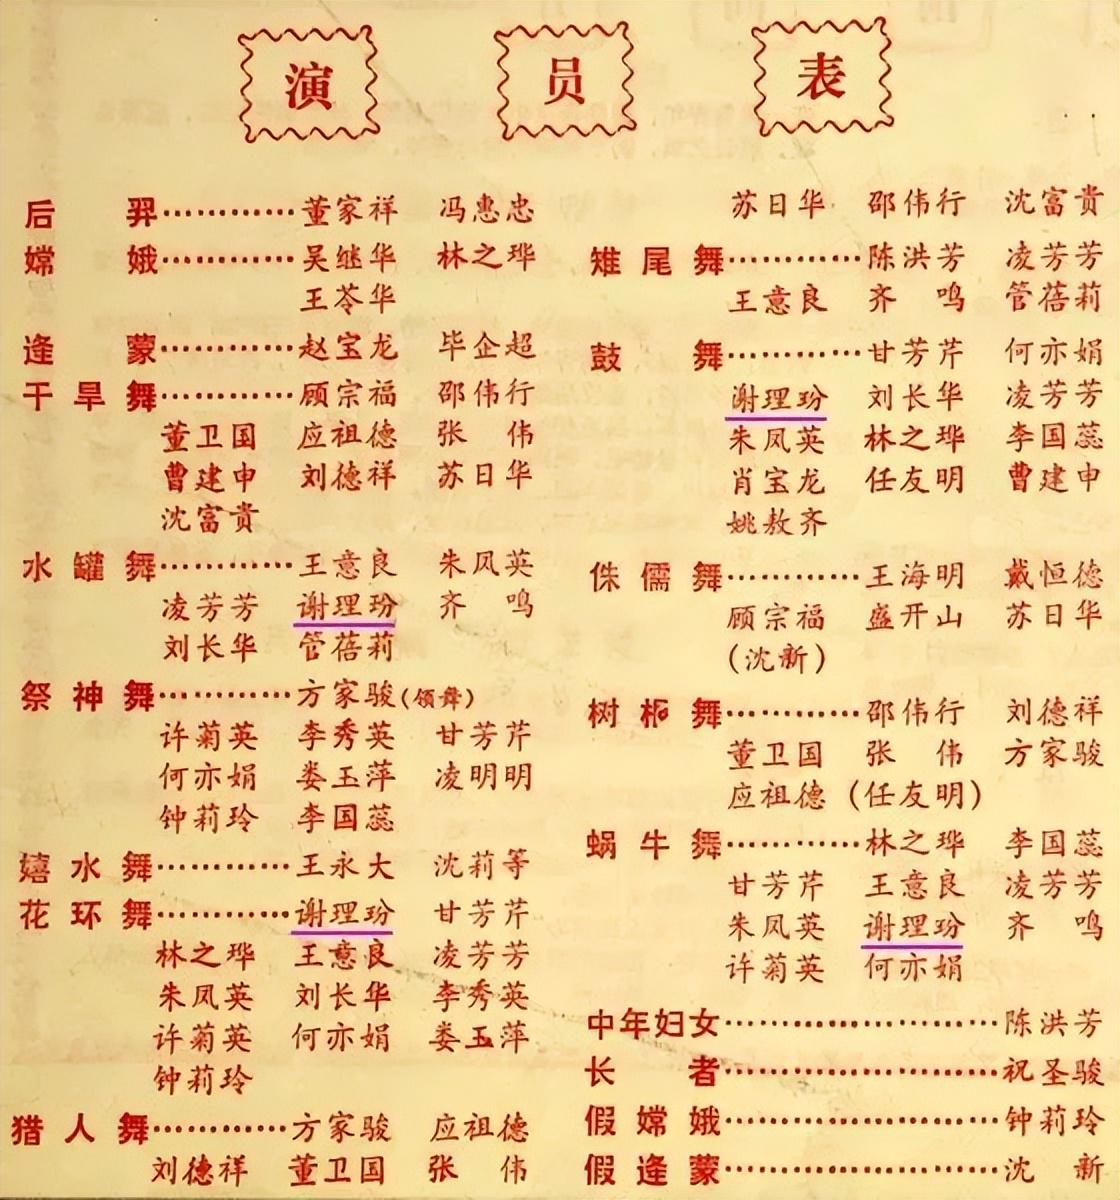 演 员 表
后 羿…………董家祥 冯惠忠
嫦 娥…………吴继华 林之璍
王苓华
逢 蒙…………赵宝龙 毕企超
干旱舞…………顾宗福 邵伟行
董卫国 应祖德 张 伟
曹建申 刘德祥 苏日华
沈富贵
水罐舞…………王意良 朱凤英
凌芳芳 谢理玢 齐 鸣
刘长华 管蓓莉
祭神舞…………方家骏(领舞)
许菊英 李秀英 甘芳芹
何亦娟 娄玉萍 凌明明
钟莉玲 李国蕊
嬉水舞…………王永大 沈莉等
花环舞…………谢理玢 甘芳芹
林之璍 王意良 凌芳芳
朱凤英 刘长华 李秀英
许菊英 何亦娟 娄玉萍
钟莉玲
猎人舞…………方家骏 应祖德
刘德祥 董卫国 张 伟
苏日华 邵伟行 沈富贵
雉尾舞…………陈洪芳 凌芳芳
王意良 齐 鸣 管蓓莉
鼓 舞…………甘芳芹 何亦娟
谢理玢 刘长华 凌芳芳
朱凤英 林之璍 李国蕊
肖宝龙 任友明 曹建申
姚敖齐
侏儒舞…………王海明 戴恒德
顾宗福 盛开山 苏日华
(沈新)
树 舞…………邵伟行 刘德祥
董卫国 张 伟 方家骏
应祖德 (任友明)
蜗牛舞…………林之璍 李国蕊
甘芳芹 王意良 凌芳芳
朱凤英 谢理玢 齐 鸣
许菊英 何亦娟
中年妇女……………………陈洪芳
长 者……………………祝圣骏
假嫦娥……………………钟莉玲
假逢蒙……………………沈 新